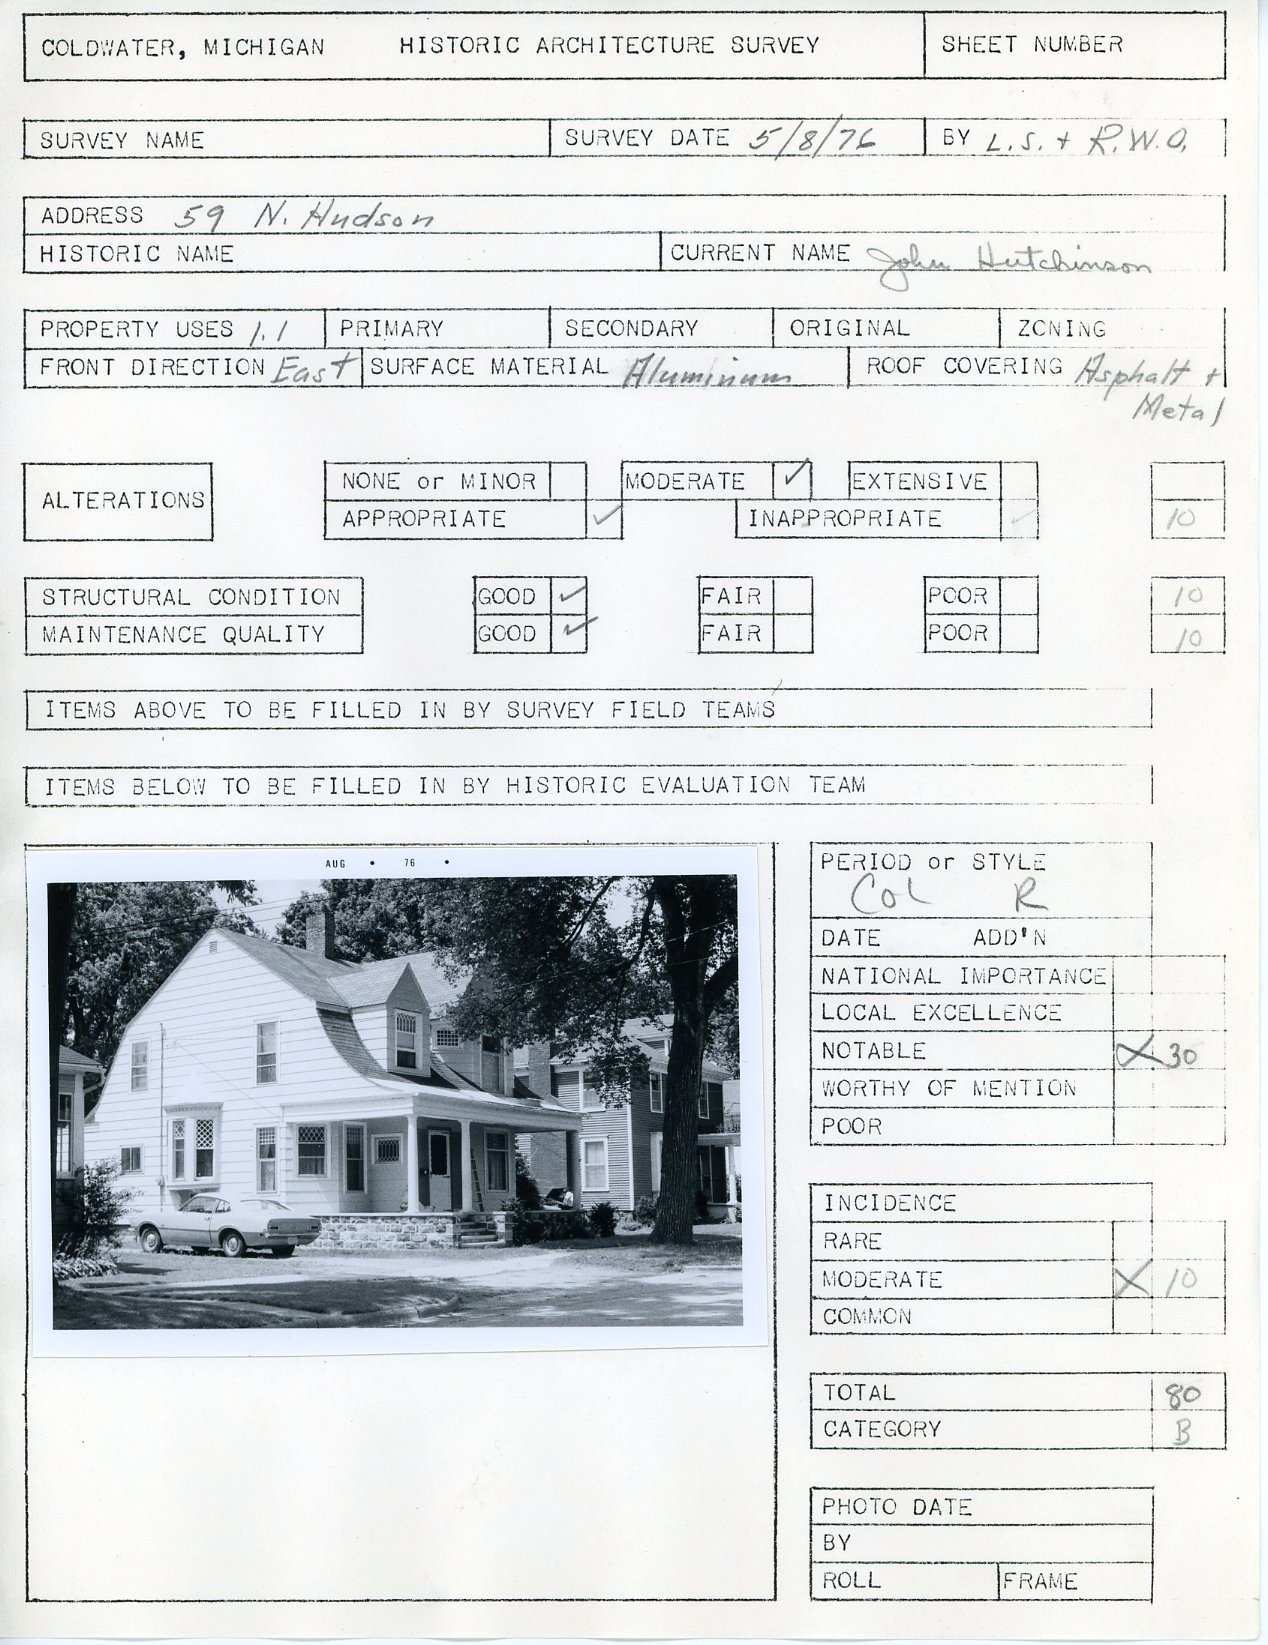 COLDWATER, MICHIGAN HISTORIC ARCHITECTURE SURVEY SHEET NUMBER
SURVEY NAME SURVEY DATE 5/8/76 BY L.S. + R.W.O.
ADDRESS 59 N. Hudson
HISTORIC NAME CURRENT NAME John Hutchinson
PROPERTY USES 1.1 PRIMARY SECONDARY ORIGINAL ZONING
FRONT DIRECTION East SURFACE MATERIAL Aluminum ROOF COVERING Asphalt +
Metal
ALTERATIONS
NONE or MINOR MODERATE ✓ EXTENSIVE
APPROPRIATE ✓ INAPPROPRIATE ✓ 10
STRUCTURAL CONDITION GOOD ✓ FAIR POOR 10
MAINTENANCE QUALITY GOOD ✓ FAIR POOR 10
ITEMS ABOVE TO BE FILLED IN BY SURVEY FIELD TEAMS
ITEMS BELOW TO BE FILLED IN BY HISTORIC EVALUATION TEAM
AUG • 76 •
PERIOD or STYLE
Col R
DATE ADD'N
NATIONAL IMPORTANCE
LOCAL EXCELLENCE
NOTABLE X 30
WORTHY OF MENTION
POOR
INCIDENCE
RARE
MODERATE X 10
COMMON
TOTAL 80
CATEGORY B
PHOTO DATE
BY
ROLL FRAME